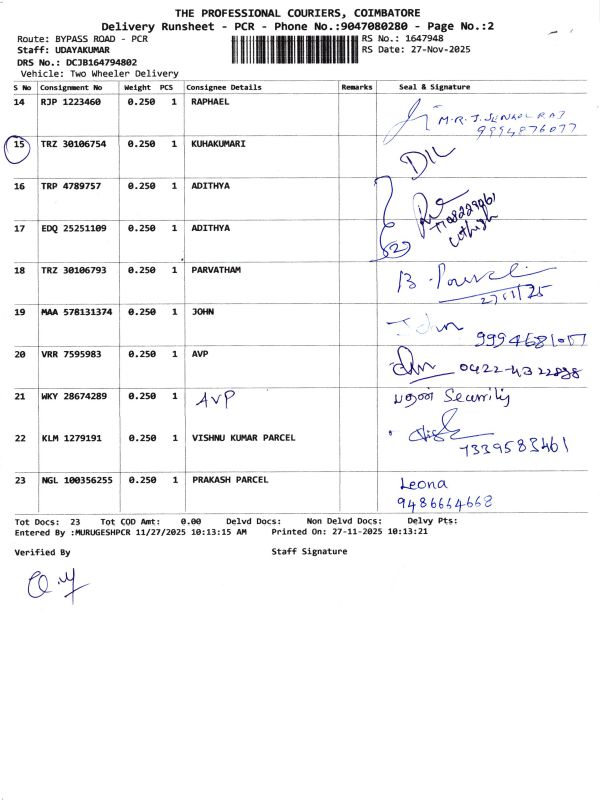 THE PROFESSIONAL COURIERS, COIMBATORE
Delivery Runsheet - PCR - Phone No.:9047080280 - Page No.:2
Route: BYPASS ROAD - PCR
RS No.: 1647948
Staff: UDAYAKUMAR
RS Date: 27-Nov-2025
DRS No.: DCJB164794802
Vehicle: Two Wheeler Delivery
S No Consignment No Weight PCS Consignee Details Remarks Seal & Signature
14 RJP 1223460 0.250 1 RAPHAEL
9994876077
15 TRZ 30106754 0.250 1 KUHAKUMARI
16 TRP 4789757 0.250 1 ADITHYA
17 EDQ 25251109 0.250 1 ADITHYA
2
18 TRZ 30106793 0.250 1 PARVATHAM
27/11/25
19 MAA 578131374 0.250 1 JOHN John
20 VRR 7595983 0.250 1 AVP 0422-4322888
21 WKY 28674289 0.250 1 AVP Security
22 KLM 1279191 0.250 1 VISHNU KUMAR PARCEL
7339583461
23 NGL 100356255 0.250 1 PRAKASH PARCEL Leona
9486664668
Tot Docs: 23 Tot COD Amt: 0.00 Delvd Docs: Non Delvd Docs: Delvy Pts:
Entered By :MURUGESHPCR 11/27/2025 10:13:15 AM Printed On: 27-11-2025 10:13:21
Verified By Staff Signature